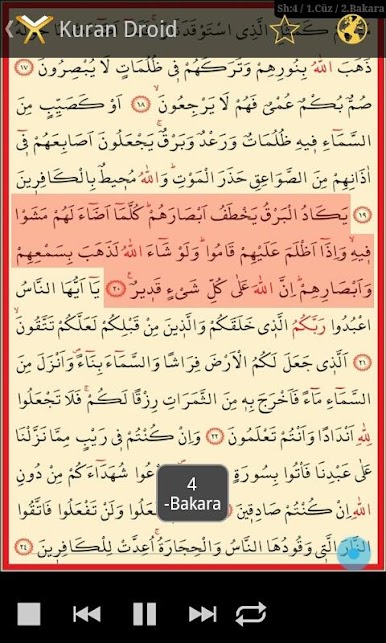 Kuran Droid
Sh:4 / 1.Cüz / 2.Bakara
ذَهَبَ اللّٰهُ بِنُورِهِمْ وَتَرَكَهُمْ ف۪ي ظُلُمَاتٍ لَا يُبْصِرُونَ ﴿١٧﴾
صُمٌّ بُكْمٌ عُمْيٌ فَهُمْ لَا يَرْجِعُونَۙ ﴿١٨﴾ اَوْ كَصَيِّبٍ مِنَ
السَّمَٓاءِ ف۪يهِ ظُلُمَاتٌ وَرَعْدٌ وَبَرْقٌۚ يَجْعَلُونَ اَصَابِعَهُمْ ف۪ٓي
اٰذَانِهِمْ مِنَ الصَّوَاعِقِ حَذَرَ الْمَوْتِۜ وَاللّٰهُ مُح۪يطٌ بِالْكَافِر۪ينَ
﴿١٩﴾ يَكَادُ الْبَرْقُ يَخْطَفُ اَبْصَارَهُمْۜ كُلَّمَٓا اَضَٓاءَ لَهُمْ مَشَوْا
ف۪يهِۙ وَاِذَٓا اَظْلَمَ عَلَيْهِمْ قَامُواۜ وَلَوْ شَٓاءَ اللّٰهُ لَذَهَبَ بِسَمْعِهِمْ
وَاَبْصَارِهِمْۜ اِنَّ اللّٰهَ عَلٰى كُلِّ شَيْءٍ قَد۪يرٌ۟ ﴿٢٠﴾ يَٓا اَيُّهَا النَّاسُ
اعْبُدُوا رَبَّكُمُ الَّذ۪ي خَلَقَكُمْ وَالَّذ۪ينَ مِنْ قَبْلِكُمْ لَعَلَّكُمْ تَتَّقُونَۙ
﴿٢١﴾ اَلَّذ۪ي جَعَلَ لَكُمُ الْاَرْضَ فِرَاشًا وَالسَّمَٓاءَ بِنَٓاءًۖ وَاَنْزَلَ مِنَ
السَّمَٓاءِ مَٓاءً فَاَخْرَجَ بِه۪ مِنَ الثَّمَرَاتِ رِزْقًا لَكُمْۚ فَلَا تَجْعَلُوا
لِلّٰهِ اَنْدَادًا وَاَنْتُمْ تَعْلَمُونَ ﴿٢٢﴾ وَاِنْ كُنْتُمْ ف۪ي رَيْبٍ مِمَّا نَزَّلْنَا
عَلٰى عَبْدِنَا فَأْتُوا بِسُورَةٍ شُهَدَٓاءَكُمْ مِنْ دُونِ
اللّٰهِ اِنْ كُنْتُمْ صَادِق۪ينَ وَلَنْ تَفْعَلُوا فَاتَّقُوا
النَّارَ الَّت۪ي وَقُودُهَا النَّاسُ وَالْحِجَارَةُۚ اُعِدَّتْ لِلْكَافِر۪ينَ ﴿٢٤﴾
4
-Bakara